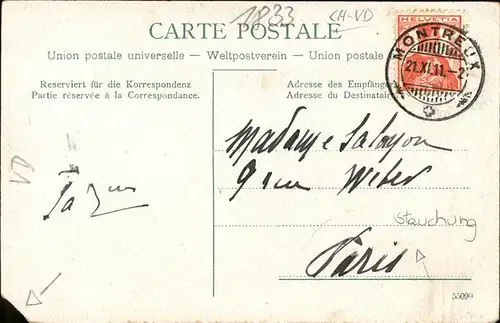 1833
CH-VD
CARTE POSTALE
HELVETIA
Union postale universelle — Weltpostverein — Union postale
MONTREUX
21.XI.11.–2
Reserviert für die Korrespondenz
Partie réservée à la Correspondance.
Adresse des Empfäng
Adresse du Destinatair
VD
Madame Salomon
9 rue Weber
Stauchung
Paris
55090